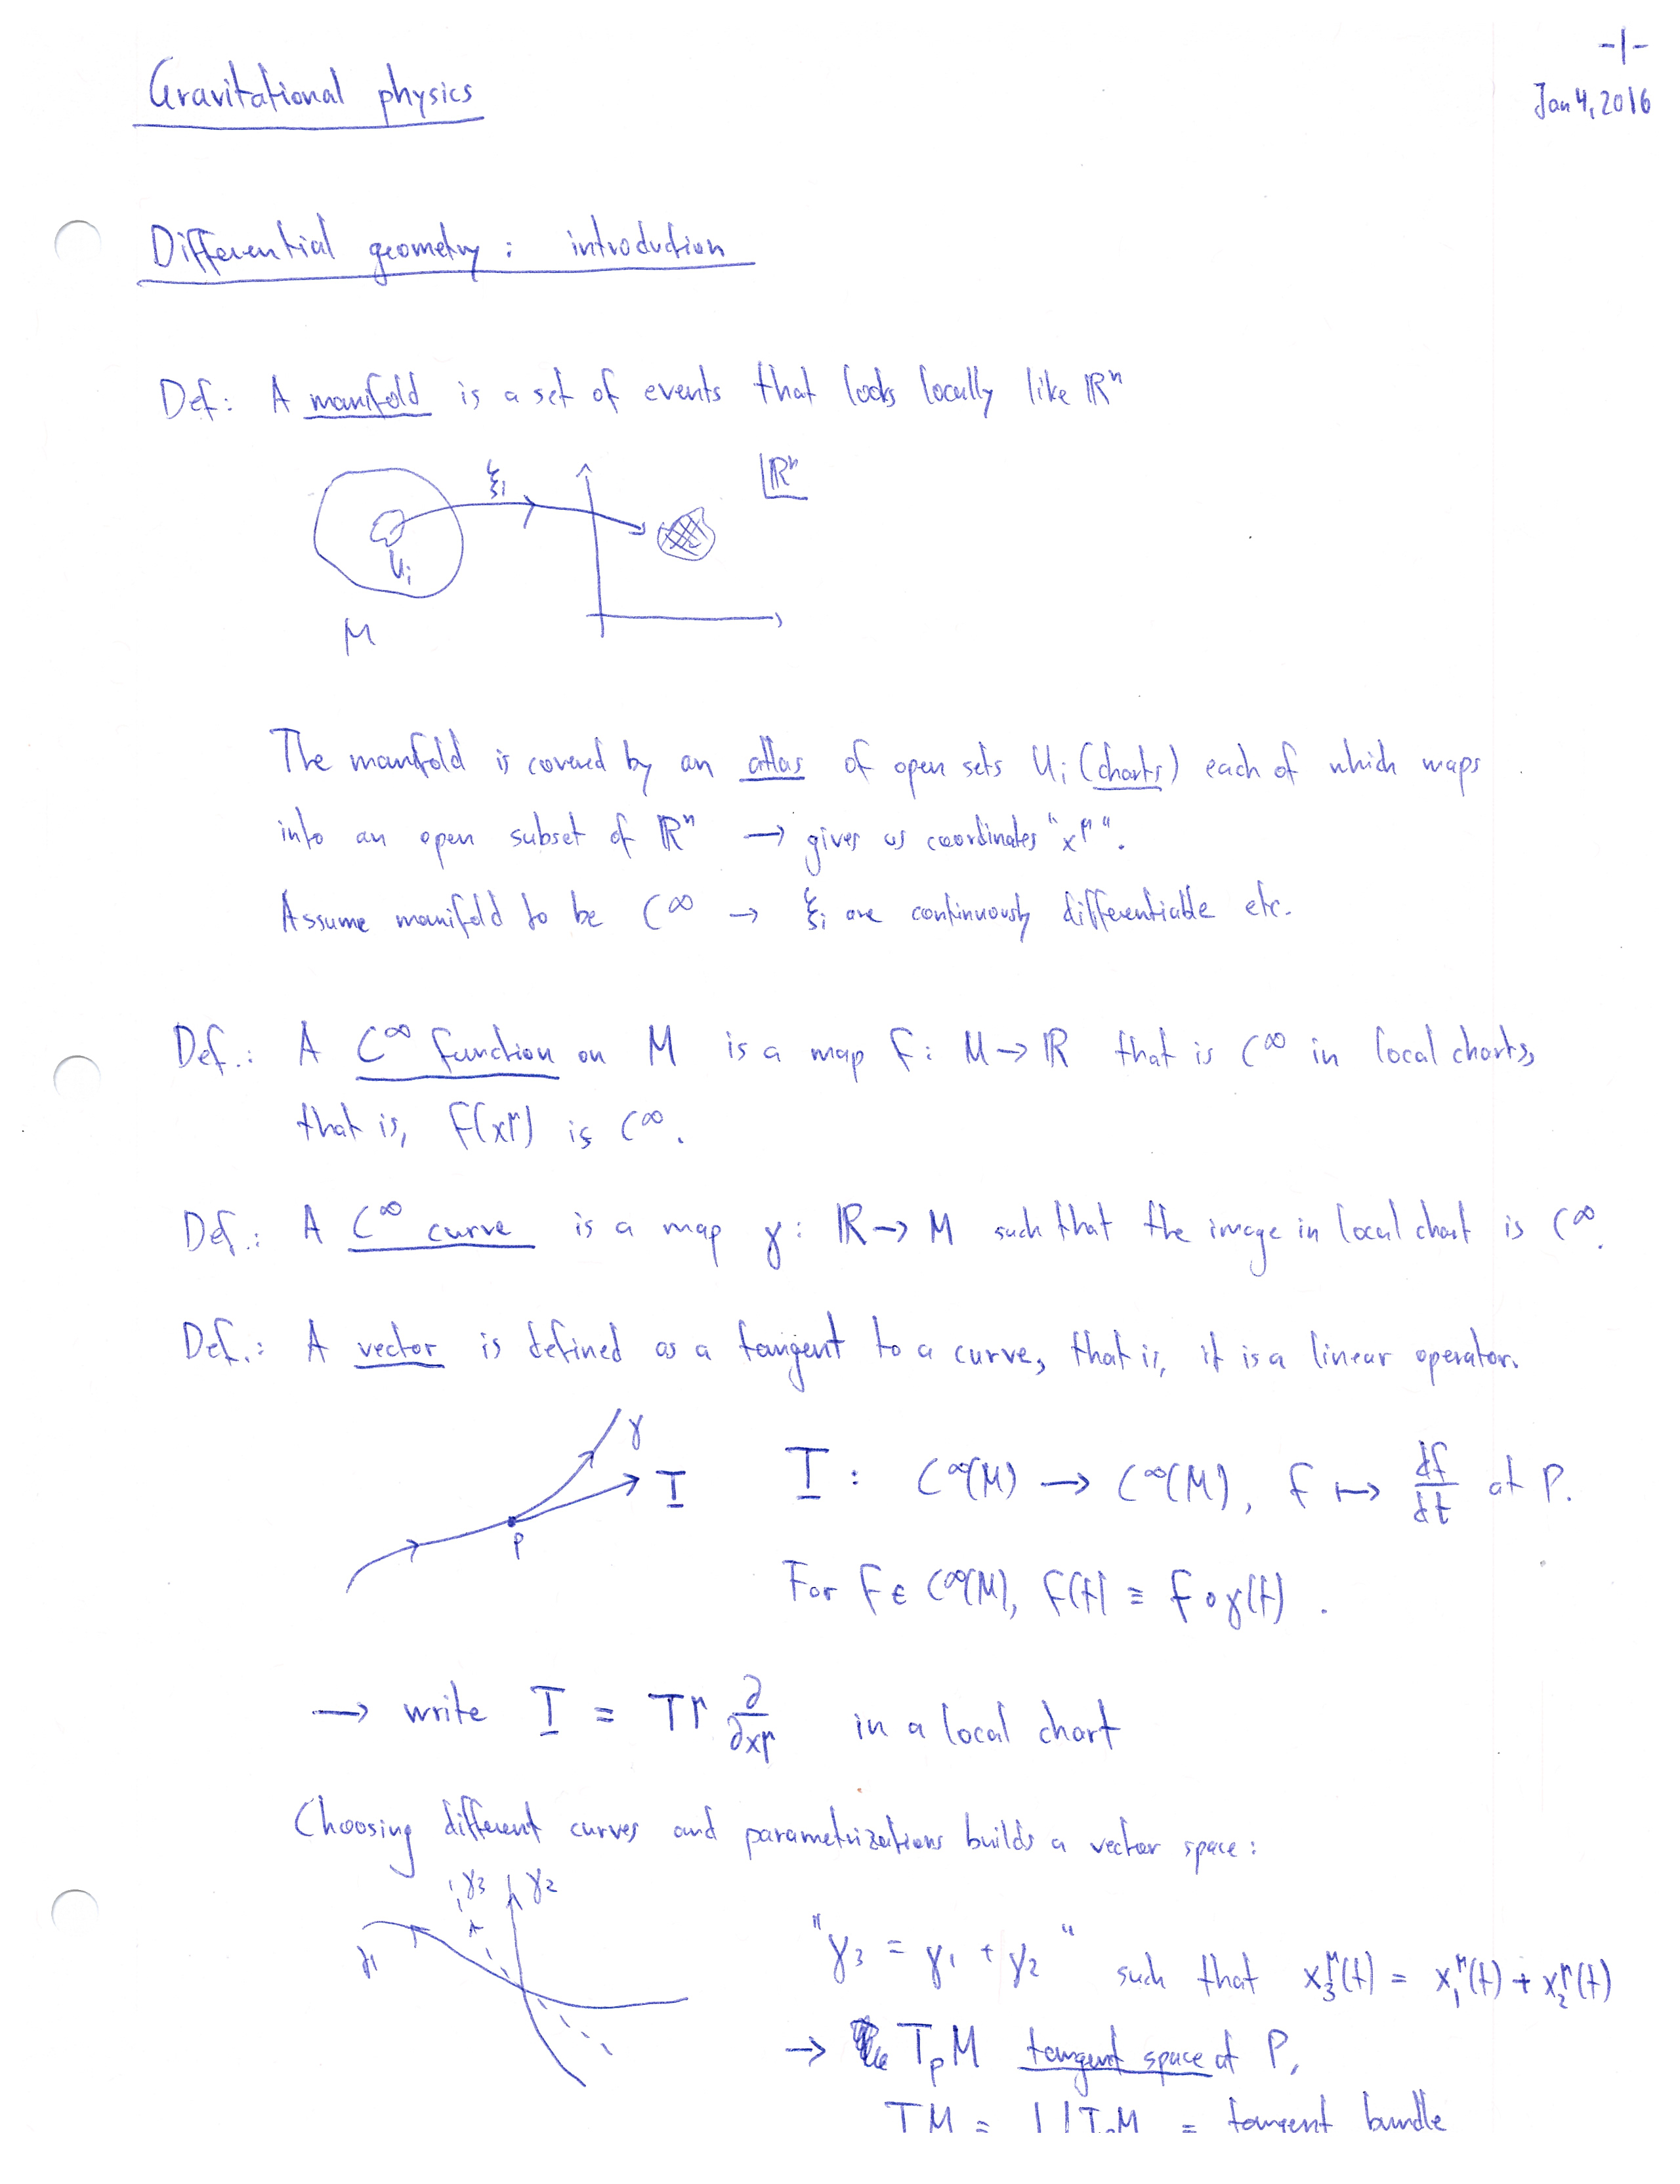 -1-
Gravitational physics
Jan 4, 2016
Differential geometry: introduction
Def.: A manifold is a set of events that looks locally like ℝⁿ
ξᵢ
ℝⁿ
Uᵢ
M
The manifold is covered by an atlas of open sets Uᵢ (charts) each of which maps
into an open subset of ℝⁿ → gives us coordinates "x^μ".
Assume manifold to be C^∞ → ξᵢ are continuously differentiable etc.
Def.: A C^∞ function on M is a map f: M → ℝ that is C^∞ in local charts,
that is, f(x^μ) is C^∞.
Def.: A C^∞ curve is a map γ: ℝ → M such that the image in local chart is C^∞.
Def.: A vector is defined as a tangent to a curve, that is, it is a linear operator.
γ
T
P
T: C^∞(M) → C^∞(M), f ↦ df/dt at P.
For f ∈ C^∞(M), f(t) ≡ f∘γ(t).
→ write T = T^μ ∂/∂x^μ in a local chart
Choosing different curves and parametrizations builds a vector space:
γ₃ γ₂
γ₁
"γ₃ = γ₁ + γ₂" such that x₃^μ(t) = x₁^μ(t) + x₂^μ(t)
→ T_pM tangent space at P,
TM = ⨆ T_pM = tangent bundle